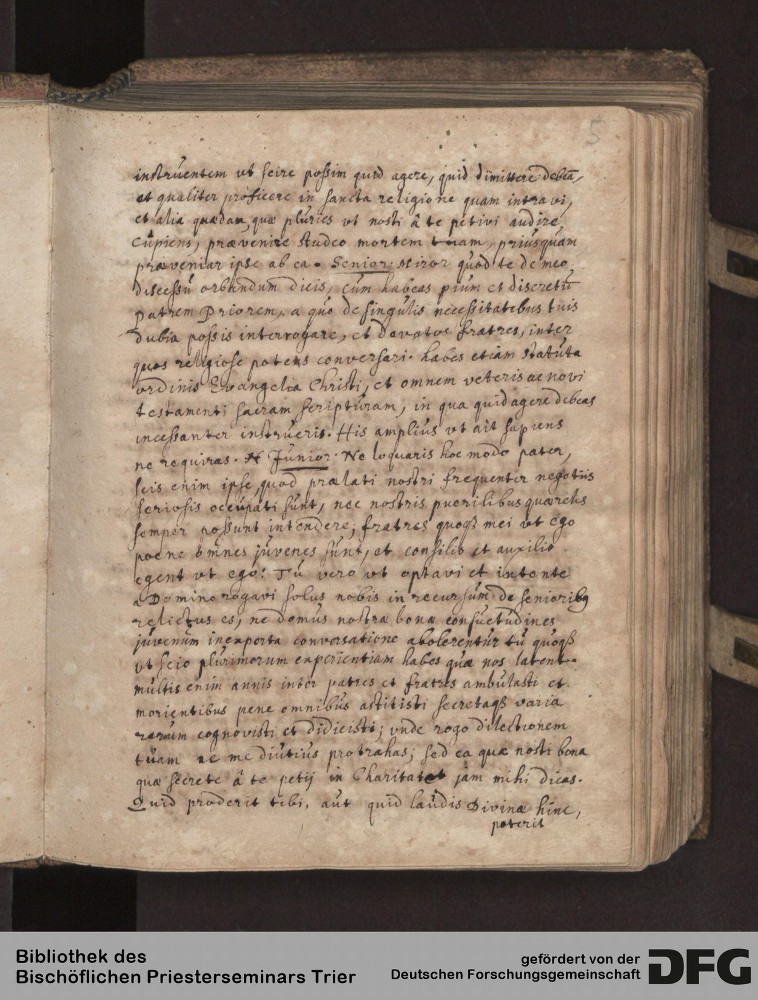 5
instruentem ut scire possim quid agere, quid dimittere debeā,
et qualiter proficere in sancta religione quam intravi,
et alia quædam, quæ pluries ut nosti â te petivi audire
cupiens, prævenire studeo mortem tuam, priusquam
præveniar ipse ab ea. Senior. Miror quod te de meo
discessū orbandum dicis, cum habeas pium et discretū
patrem Priorem, a quo de singulis necessitatibus tuis
dubia possis interrogare, et devotos fratres, inter
quos religiose potens conversari. habes etiam statuta
ordinis Evangelia Christi, et omnem veteris ac novi
testamenti sacram scripturam, in qua quid agere debeas
incessanter instrueris. His amplius ut ait sapiens
ne requiras. Junior. Ne loquaris hoc modo pater,
scis enim ipse, quod prælati nostri frequenter negotiis
seriosis occupati sunt, nec nostris puerilibus quærelis
semper possunt intendere; fratres quoqȝ mei ut ego
poene omnes juvenes sunt, et consilio et auxilio
egent ut ego: Tu vero ut optavi et intente
a Domino rogavi solus nobis in recursum de seniorib9
relictus es, ne domus nostræ bonæ consuetudines
juvenum inexperta conversatione abolerentur tu quoqȝ
ut scio plurimorum experientiam habes quæ nos latent.
multis enim annis inter patres et fratres ambulasti et
morientibus pene omnibus astitisti secretaqȝ varia
rerum cognovisti et didicisti; unde rogo dilectionem
tuam ne me diutius protrahas; sed ea quæ nosti bona
quæ secrete â te petij in Charitate jam mihi dicas.
Quid proderit tibi, aut quid laudis Divinæ hinc,
poterit
Bibliothek des
Bischöflichen Priesterseminars Trier
gefördert von der
Deutschen Forschungsgemeinschaft
DFG